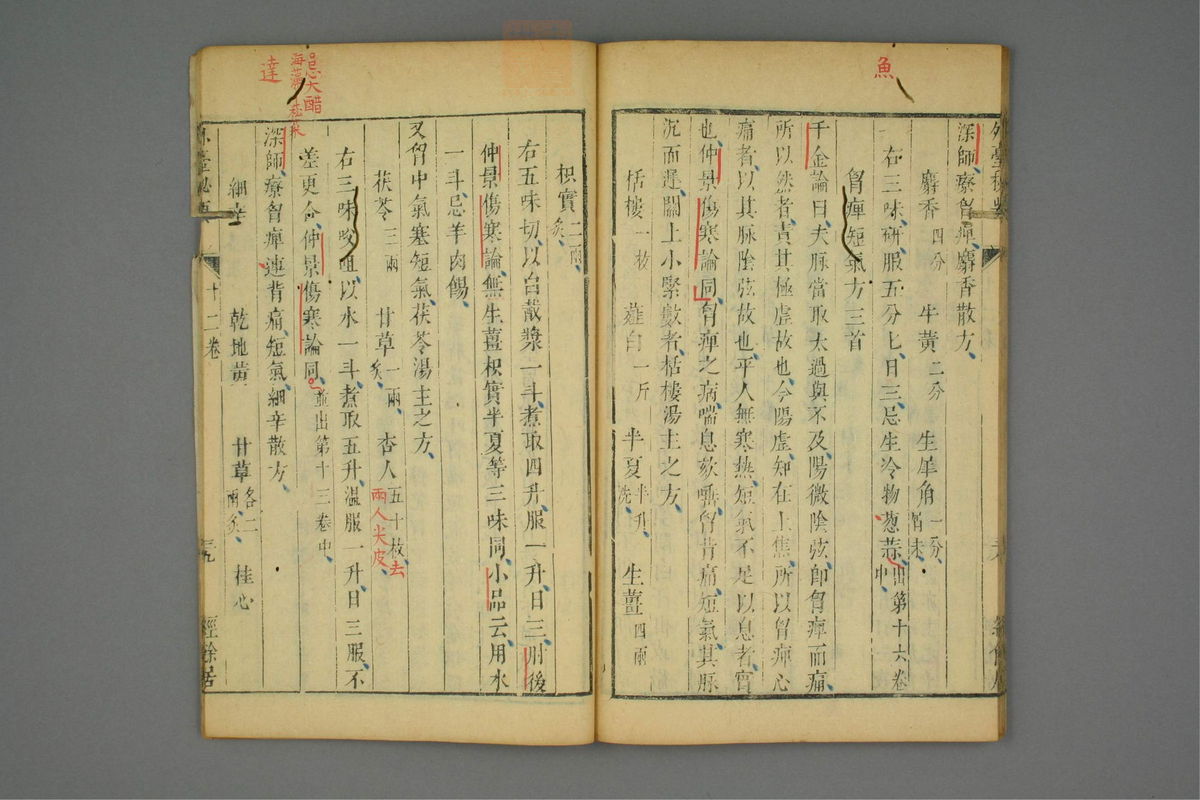 魚
深師療胷痺麝香散方
麝香四分 牛黃二分 生犀角一分屑末
右三味研服五分匕日三忌生冷物葱蒜出第十六卷中
胷痺短氣方三首
千金論曰夫脉當取太過與不及陽微陰弦卽胷痺而痛
所以然者責其極虛故也今陽虛知在上焦所以胷痺心
痛者以其脉陰弦故也平人無寒熱短氣不足以息者實
也仲景傷寒論同胷痺之病喘息欬唾胷背痛短氣其脉
沉而遲關上小緊數者栝樓湯主之方
栝樓一枚 薤白一斤 半夏半升洗 生薑四兩
枳實二兩炙
右五味切以白截漿一斗煮取四升服一升日三肘後
仲景傷寒論無生薑枳實半夏等三味同小品云用水
一斗忌羊肉餳
又胷中氣塞短氣茯苓湯主之方
茯苓三兩 甘草一兩炙 杏人五十枚去兩人尖皮
忌大醋
海藻菘菜
右三味㕮咀以水一斗煮取五升溫服一升日三服不
差更合仲景傷寒論同並出第十三卷中
達
深師療胷痺連背痛短氣細辛散方
細辛 乾地黃 甘草各二兩炙 桂心
外臺秘要 十二卷 三九 經餘居